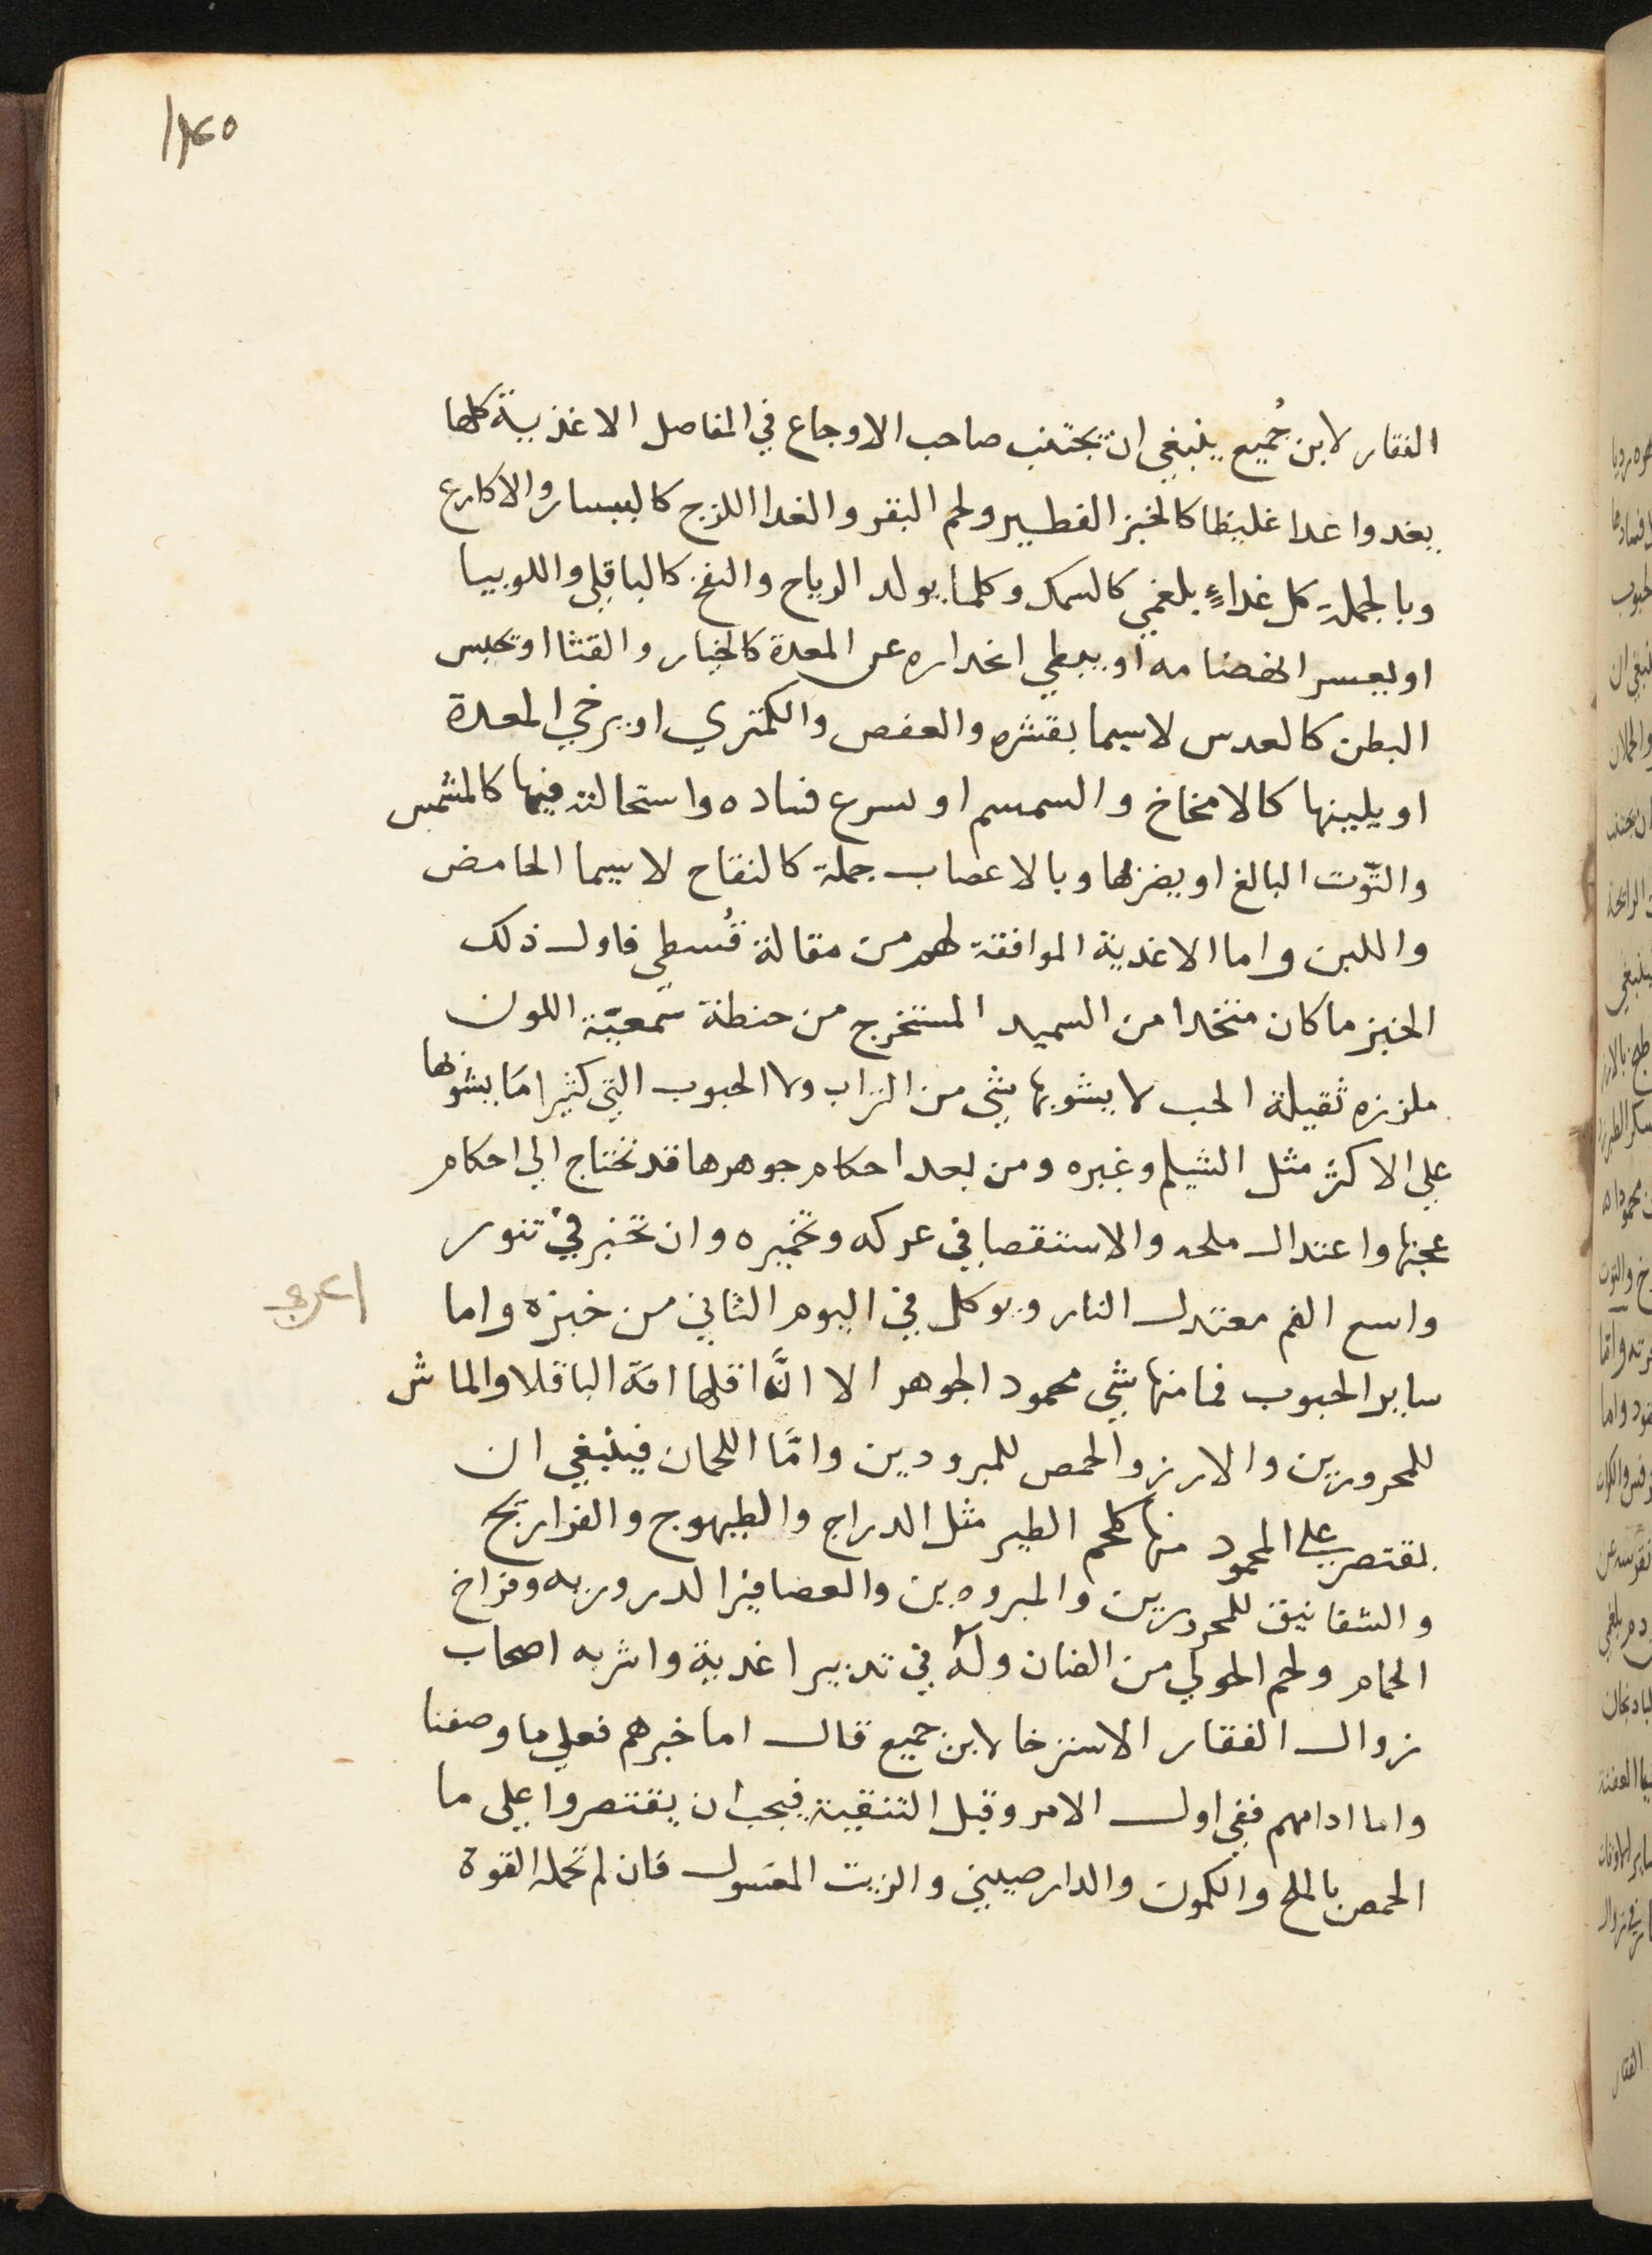 الفقار لابن جُميع ينبغي ان يجتنب صاحب الاوجاع في المفاصل الاغذية كلها
يغدوا غدا غليظا كالخبز الفطير ولحم البقر والغدا اللزج كالبيسار والاكارع
وبالجملة كل غداءٍ بلغمي كالسمك وكلما يولد الرياح والنفخ كالباقلي واللوبيا
او يعسر انهضامه او يبطي انحداره عن المعدة كالخيار والقثا او تحبس
البطن كالعدس لاسيما بقشره والعفص والكمثري او يرخي المعدة
او يلينها كالامخاخ والسمسم او يسرع فساده واستحالته فيها كالمشمس
والتّوت البالغ او يضربها وبالاعصاب جملة كالتفاح لاسيما الحامض
واللبن واما الاغدية الموافقة لهم من مقالة قُسطي فاول ذلك
الخبز ما كان متخدا من السميد المستخرج من حنطة شمعيّة اللون
ملززه ثقيلة الحب لا يشوبها شي من التراب ولا الحبوب التي كثيرا ما يشوبها
علي الاكثر مثل الشيلم وغيره ومن بعد احكام جوهرها قد تحتاج الي احكام
عجنها واعتدال ملحه والاستقصا في عركه وتخميره وان تخبز في تنور
واسع الفم معتدل النار ويوكل في اليوم الثاني من خبزه واما
ساير الحبوب فما منها شي محمود الجوهر الا انَّ اقلها افة الباقلا والماش
للمحرورين والارز والحمص للمبرودين وامّا اللحمان فينبغي ان
يقتصر علي المحمود منها كلحم الطير مثل الدراج والطيهوج والفراريج
والشفانين للمحرورين والمبرودين والعصافير الدروريه وفراخ
الحمام ولحم الحولي من الضان وله في تدبير اغدية واشربه اصحاب
زوال الفقار الاسترخا لابن جميع قال اما خبزهم فعلي ما وصفنا
واما ادامهم ففي اول الامر وقبل التنقية فيجب ان يقتصروا علي ما
الحمص بالملح والكمون والدارصيني والزيت المغسول فان لم تحمله القوة